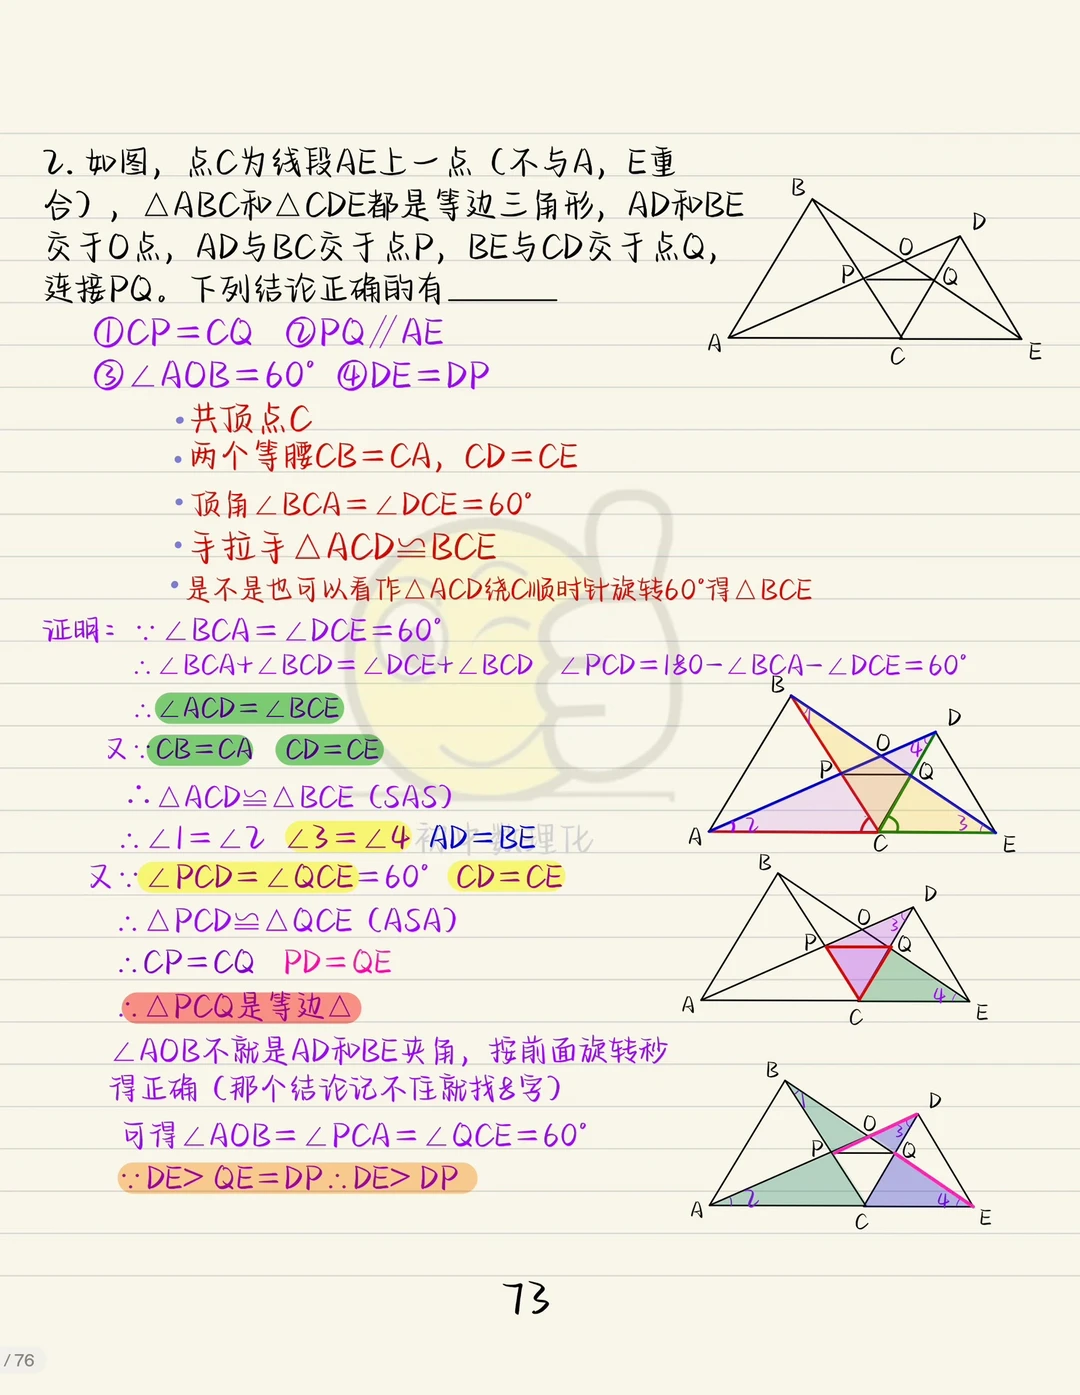 2. 如图，点C为线段AE上一点（不与A，E重
合），△ABC和△CDE都是等边三角形，AD和BE
交于O点，AD与BC交于点P，BE与CD交于点Q，
连接PQ。下列结论正确的有________
①CP=CQ ②PQ∥AE
③∠AOB=60° ④DE=DP
B
D
O
P
Q
A
C
E
·共顶点C
·两个等腰CB=CA，CD=CE
·顶角∠BCA=∠DCE=60°
·手拉手△ACD≌BCE
·是不是也可以看作△ACD绕C顺时针旋转60°得△BCE
证明：∵∠BCA=∠DCE=60°
∴∠BCA+∠BCD=∠DCE+∠BCD ∠PCD=180-∠BCA-∠DCE=60°
∴∠ACD=∠BCE
又∵CB=CA CD=CE
∴△ACD≌△BCE（SAS）
∴∠1=∠2 ∠3=∠4 AD=BE
B
1
D
O
4
P
Q
A
2
3
C
E
又∵∠PCD=∠QCE=60° CD=CE
∴△PCD≌△QCE（ASA）
∴CP=CQ PD=QE
∴△PCQ是等边△
B
D
O
3
P
Q
A
4
C
E
∠AOB不就是AD和BE夹角，按前面旋转秒
得正确（那个结论记不住就找8字）
可得∠AOB=∠PCA=∠QCE=60°
∵DE>QE=DP∴DE>DP
B
1
D
O
3
P
Q
A
2
4
C
E
初中数理化
73
/ 76